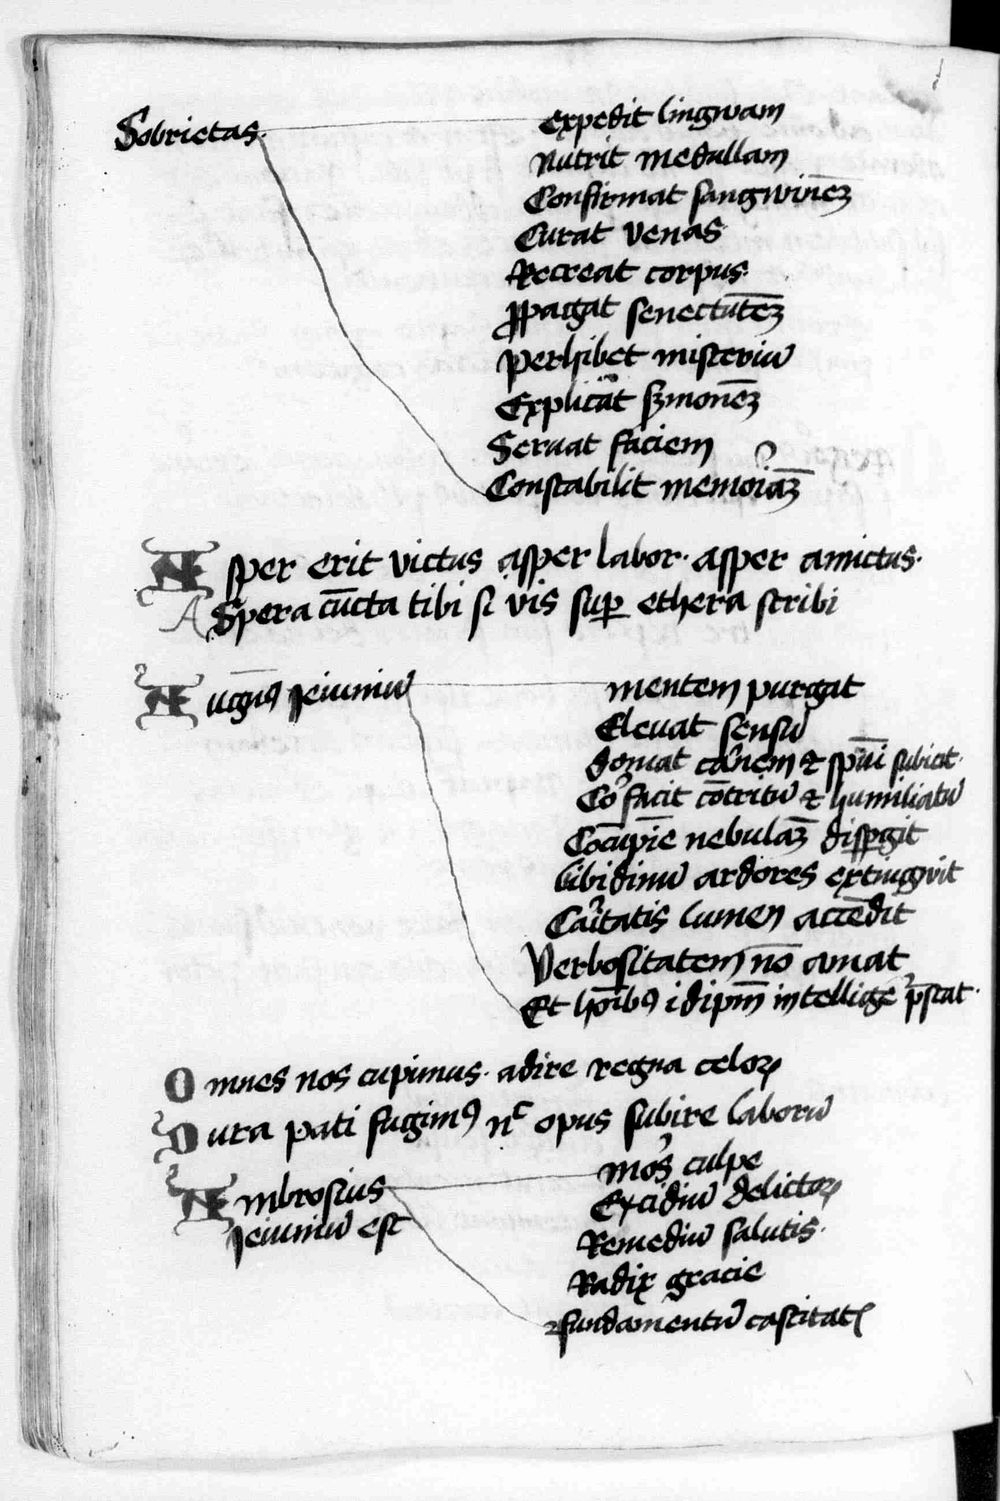 Sobrietas.
Expedit lingwam
Nutrit medullam
Confirmat sangwinēʒ
Curat venas
Recreat corpus.
ꝓpagat senectutēʒ
Perhibet misteriū
Explicat sʒmonēʒ
Seruat faciem
Constabilit memoriāʒ
Asper erit victus asper labor. asper amictus.
ASpera cūcta tibi si vis suꝑ ethera scribi
Augꝰ Jeiuniū
mentem purgat
Eleuat sensū
domat carnem et spūi subicit.
Cor facit cōtritū et humiliatū
Cōcupīē nebulāʒ disꝑgit
libidinū ardores extingvit
Caritatis lumen accēdit
Verbositatem nō amat
Et hoībꝰ idipm̄ intellige p̄stat.
Omnes nos cupimus. adire regna celoꝝ
Dura pati fugimꝰ nᶜ opus subire laborū
Ambrosius
Jeiuniū est
mors culpe
Excidiū delictoꝝ
Remediū salutis.
Radix gracie
fundamentū castitatꝭ